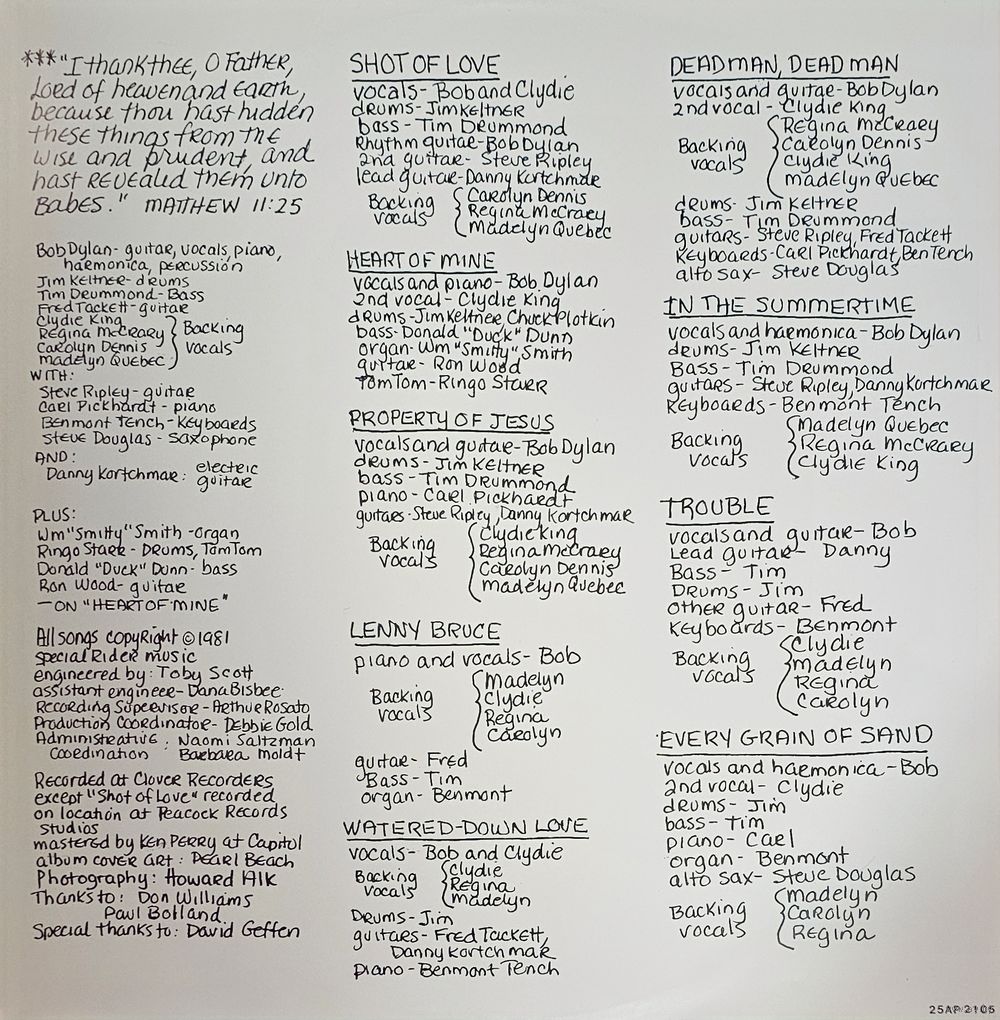 ***"I thank thee, O Father,
Lord of heaven and Earth,
because thou hast hidden
these things from the
wise and prudent, and
hast revealed them unto
Babes." MATTHEW 11:25
Bob Dylan- guitar, vocals, piano,
harmonica, percussion
Jim Keltner- drums
Tim Drummond- Bass
Fred Tackett- guitar
Clydie King
Regina McCrary
Carolyn Dennis
Madelyn Quebec
Backing
vocals
WITH:
Steve Ripley- guitar
Carl Pickhardt - piano
Benmont Tench- Keyboards
Steve Douglas - Saxophone
AND:
Danny Kortchmar: electric
guitar
PLUS:
Wm "Smitty" Smith -organ
Ringo Starr - Drums, TomTom
Donald "Duck" Dunn- bass
Ron Wood- guitar
—ON "HEART OF MINE"
All songs copyRight © 1981
Special Rider music
engineered by: Toby Scott
assistant engineer- Dana Bisbee
Recording Supervisor - Arthur Rosato
Production Coordinator- Debbie Gold
Administrative : Naomi Saltzman
Coordination Barbara Moldt
Recorded at Clover Recorders
except "Shot of Love" recorded
on location at Peacock Records
Studios
mastered by Ken Perry at Capitol
album cover art : Pearl Beach
Photography: Howard Alk
Thanks to: Don Williams
Paul Bolland
Special thanks to: David Geffen
SHOT OF LOVE
vocals- Bob and Clydie
drums- Jim Keltner
bass - Tim Drummond
Rhythm guitar- Bob Dylan
2nd guitar- Steve Ripley
lead guitar- Danny Kortchmar
Backing
vocals
Carolyn Dennis
Regina McCrary
Madelyn Quebec
HEART OF MINE
vocals and piano- Bob Dylan
2nd vocal- Clydie King
drums- Jim Keltner, Chuck Plotkin
bass- Donald "Duck" Dunn
organ- Wm "Smitty" Smith
guitar- Ron Wood
TomTom- Ringo Starr
PROPERTY OF JESUS
vocals and guitar- Bob Dylan
drums- Jim Keltner
bass- Tim Drummond
piano - Carl Pickhardt
guitars- Steve Ripley, Danny Kortchmar
Backing
vocals
Clydie King
Regina McCrary
Carolyn Dennis
Madelyn Quebec
LENNY BRUCE
piano and vocals- Bob
Backing
vocals
Madelyn
Clydie
Regina
Carolyn
guitar- Fred
Bass - Tim
organ- Benmont
WATERED-DOWN LOVE
vocals- Bob and Clydie
Backing
vocals
Clydie
Regina
Madelyn
Drums- Jim
guitars- Fred Tackett,
Danny Kortchmar
piano - Benmont Tench
DEAD MAN, DEAD MAN
vocals and guitar- Bob Dylan
2nd vocal - Clydie King
Backing
vocals
Regina McCrary
Carolyn Dennis
Clydie King
Madelyn Quebec
drums- Jim Keltner
bass- Tim Drummond
guitars- Steve Ripley, Fred Tackett
Keyboards- Carl Pickhardt, Ben Tench
alto sax- Steve Douglas
IN THE SUMMERTIME
vocals and harmonica- Bob Dylan
drums- Jim Keltner
Bass- Tim Drummond
guitars- Steve Ripley, Danny Kortchmar
Keyboards- Benmont Tench
Backing
vocals
Madelyn Quebec
Regina McCrary
Clydie King
TROUBLE
vocals and guitar- Bob
Lead guitar- Danny
Bass- Tim
Drums- Jim
other guitar- Fred
Keyboards- Benmont
Backing
vocals
Clydie
Madelyn
Regina
Carolyn
EVERY GRAIN OF SAND
vocals and harmonica- Bob
2nd vocal- Clydie
drums- Jim
bass- Tim
piano- Carl
organ- Benmont
alto sax- Steve Douglas
Backing
vocals
Madelyn
Carolyn
Regina
25AP 2105